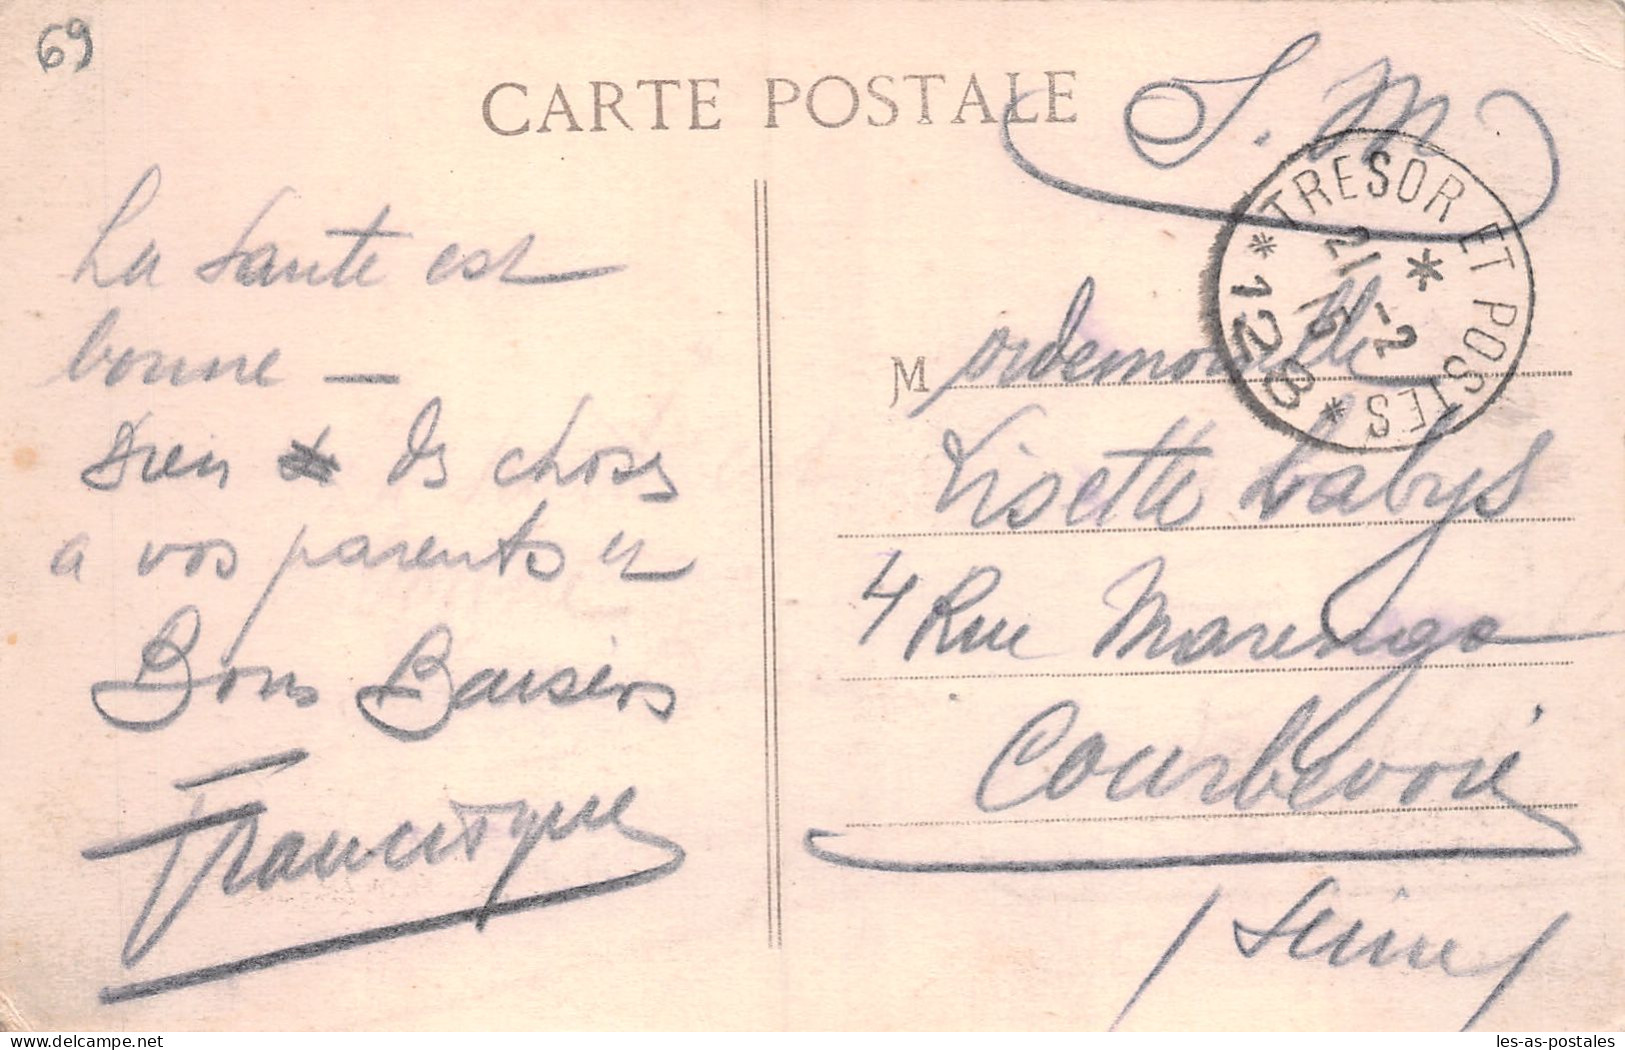 69
CARTE POSTALE
S. M
TRESOR ET POSTES
* 128 *
21 -2
15
La Sante est
bonne —
Bien des choses
a vos parents et
Bons Baisers
Francisque
M ademoiselle
Lisette Labys
4 Rue Marengo
Courbevoie
/ Seine /
www.delcampe.net
les-as-postales